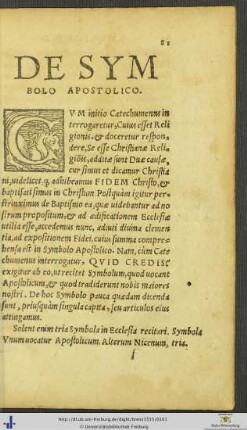 81
DE SYM
BOLO APOSTOLICO.
CVM initio Catechumenus in
terrogaretur, Cuius esset Reli
gionis, & doceretur respon,
dere, Se esse Christianæ Reli,
giõis, additæ sunt Duæ causæ,
cur simus et dicamur Christia
ni, uidelicet, q. adhibeamus FIDEM Christo, &
baptisati simus in Christum Postquàm igitur per-
strinximus de Baptismo ea, quæ uidebantur ad no
strum propositum, & ad ædificationem Ecclesiæ
utilia esse, accedemus nunc, adiuti diuina clemen
tia, ad expositionem Fidei, cuius summa compre-
hensa est in Symbolo Apostolico. Nam, cùm Cate
chumenus interrogatur, QVID CREDIS?
exigitur ab eo, ut recitet Symbolum, quod uocant
Apostolicum, & quod tradiderunt nobis maiores
nostri. De hoc Symbolo pauca quædam dicenda
sunt, priusquàm singula capita, seu articulos eius
attingamus.
Solent enim tria Symbola in Ecclesia recitari. Symbola
Vnum uocatur Apostolicum. Alterum Nicenum, tria.
http://dl.ub.uni-freiburg.de/diglit/
© Universitätsbibliothek Freiburg